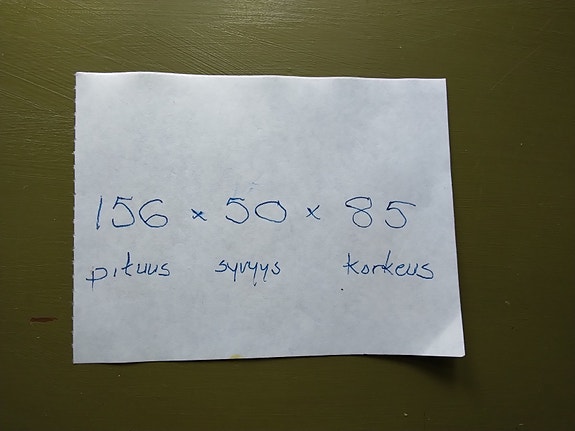 156 x 50 x 85
pituus syvyys korkeus